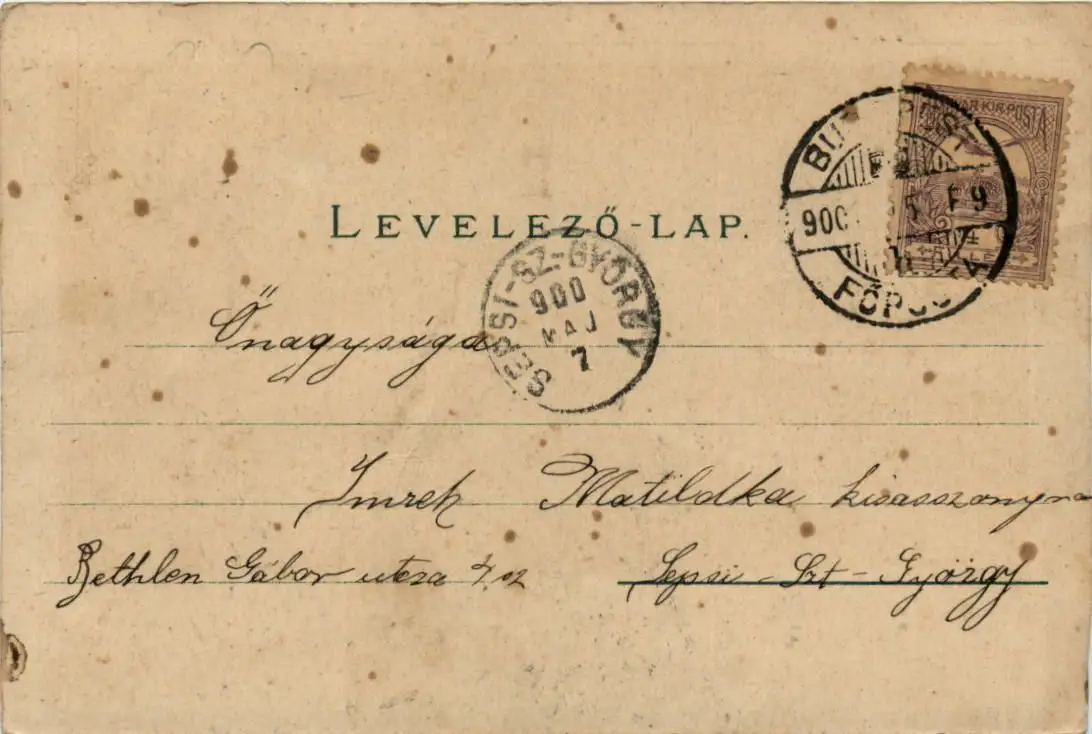 MAGYAR KIR. POSTA
BUDAPEST
900 5 F 9
FŐPOSTA
LEVELEZŐ-LAP.
SEPSI-SZ-GYÖRGY
900
MAJ
7
Őnagysága
Imreh Matildka kisasszonyna
Bethlen Gábor utcza 4 sz
Sepsi-Szt-György